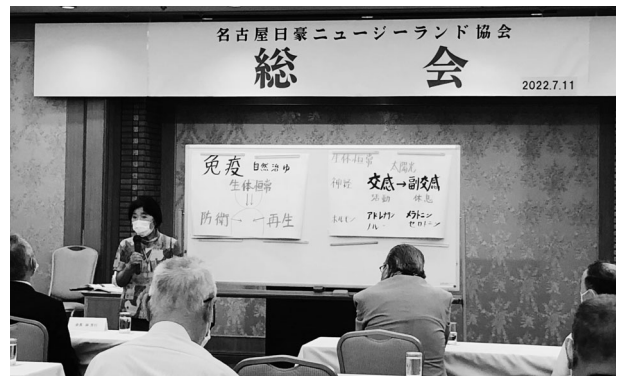 名古屋日豪ニュージーランド協会
総会
2022.7.11
免疫 自然治ゆ
生体恒常
防衛 再生
生体恒常
太陽光
神経 交感→副交感
活動 休息
ホルモン アドレナリン メラトニン
ノル セロトニン